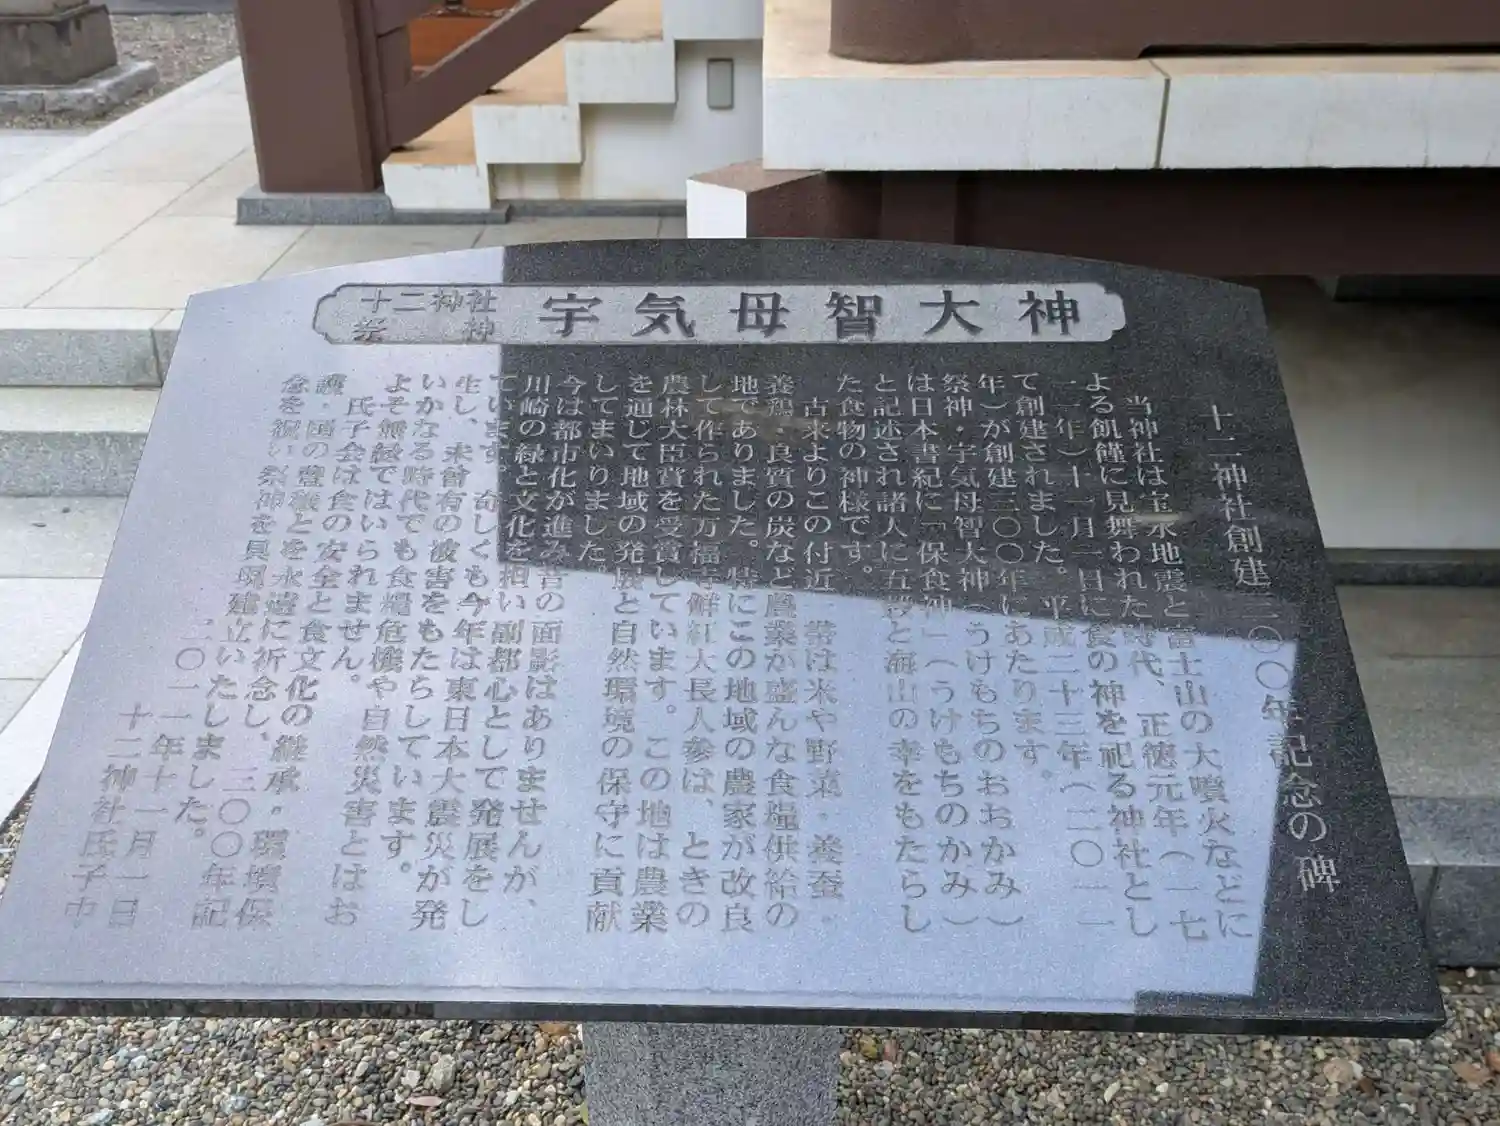 十二神社
祭神
宇気母智大神
十二神社創建三〇〇年記念の碑
当神社は宝永地震と富士山の大噴火などに
よる飢饉に見舞われた時代、正徳元年(一七
一一年)十一月一日に食の神を祀る神社とし
て創建されました。平成二十三年(二〇一一
年)が創建三〇〇年にあたります。
祭神・宇気母智大神(うけもちのおおかみ)
は日本書紀に「保食神」(うけもちのかみ)
と記述され諸人に五穀と海山の幸をもたらし
た食物の神様です。
古来よりこの付近一帯は米や野菜・養蚕・
養鶏・良質の炭など農業が盛んな食糧供給の
地でありました。特にこの地域の農家が改良
して作られた万福寺鮮紅大長人参は、ときの
農林大臣賞を受賞しています。この地は農業
を通じて地域の発展と自然環境の保守に貢献
してまいりました。
今は都市化が進み昔の面影はありませんが、
川崎の緑と文化を担い副都心として発展をし
ています。奇しくも今年は東日本大震災が発
生し、未曾有の被害をもたらしています。
いかなる時代でも食糧危機や自然災害とはお
よそ無縁ではいられません。
氏子会は食の安全と食文化の継承・環境保
護・国の豊穣とを永遠に祈念し、三〇〇年記
念を祝い祭神を具現建立いたしました。
二〇一一年十一月一日
十二神社氏子中